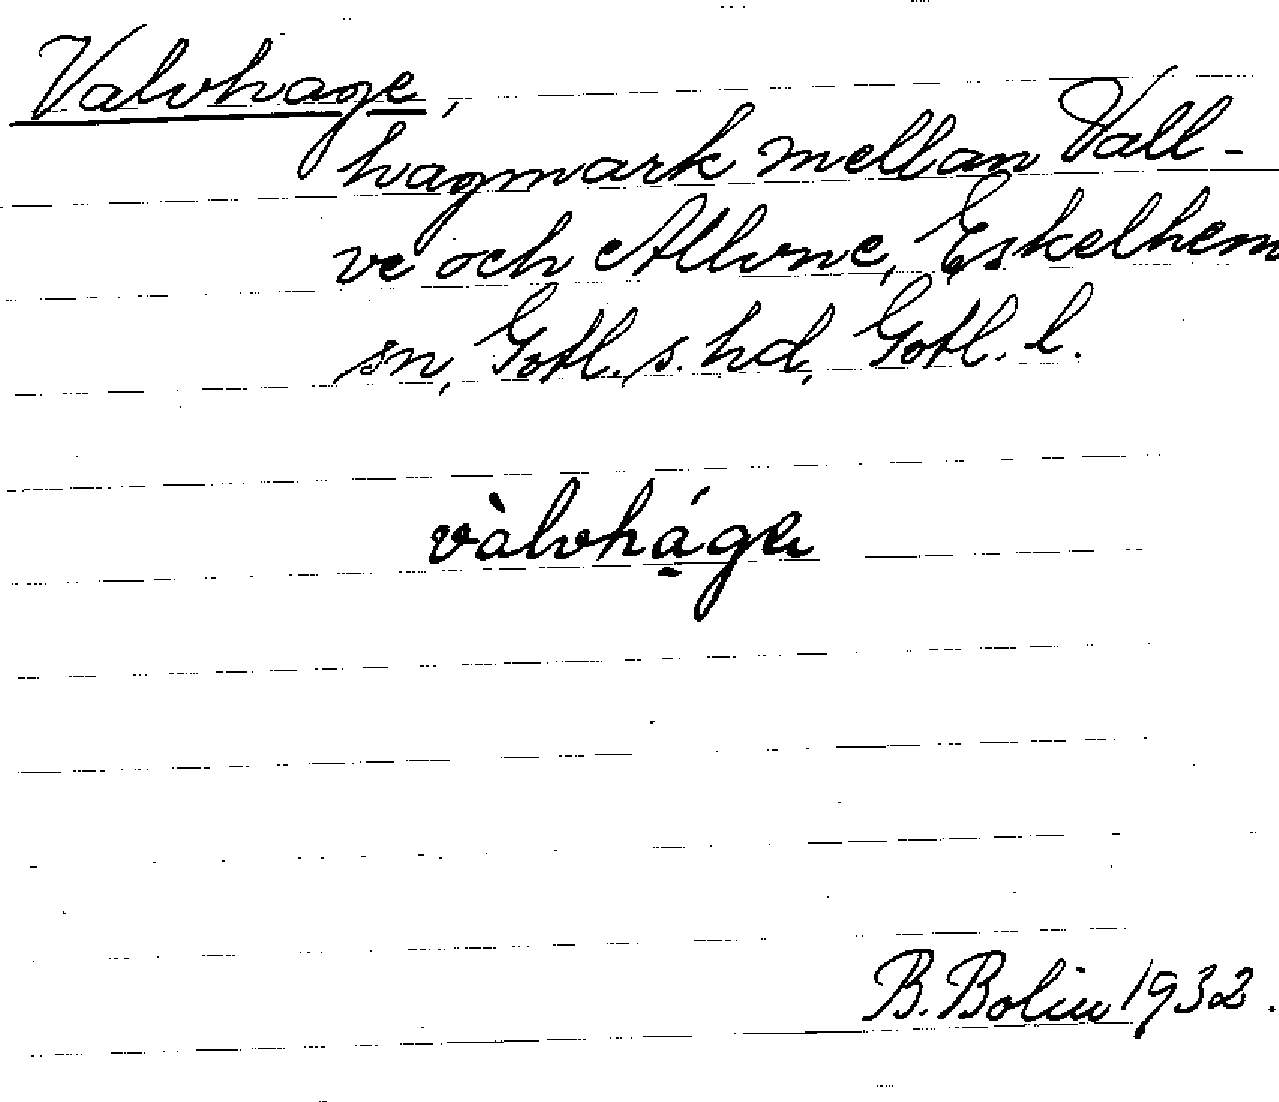 Valvhage,
hagmark mellan Vall-
ve och Allvne, Eskelhem
sn, Gotl. s. hd, Gotl. l.
vàlvhá̱ga
B. Bolin 1932.